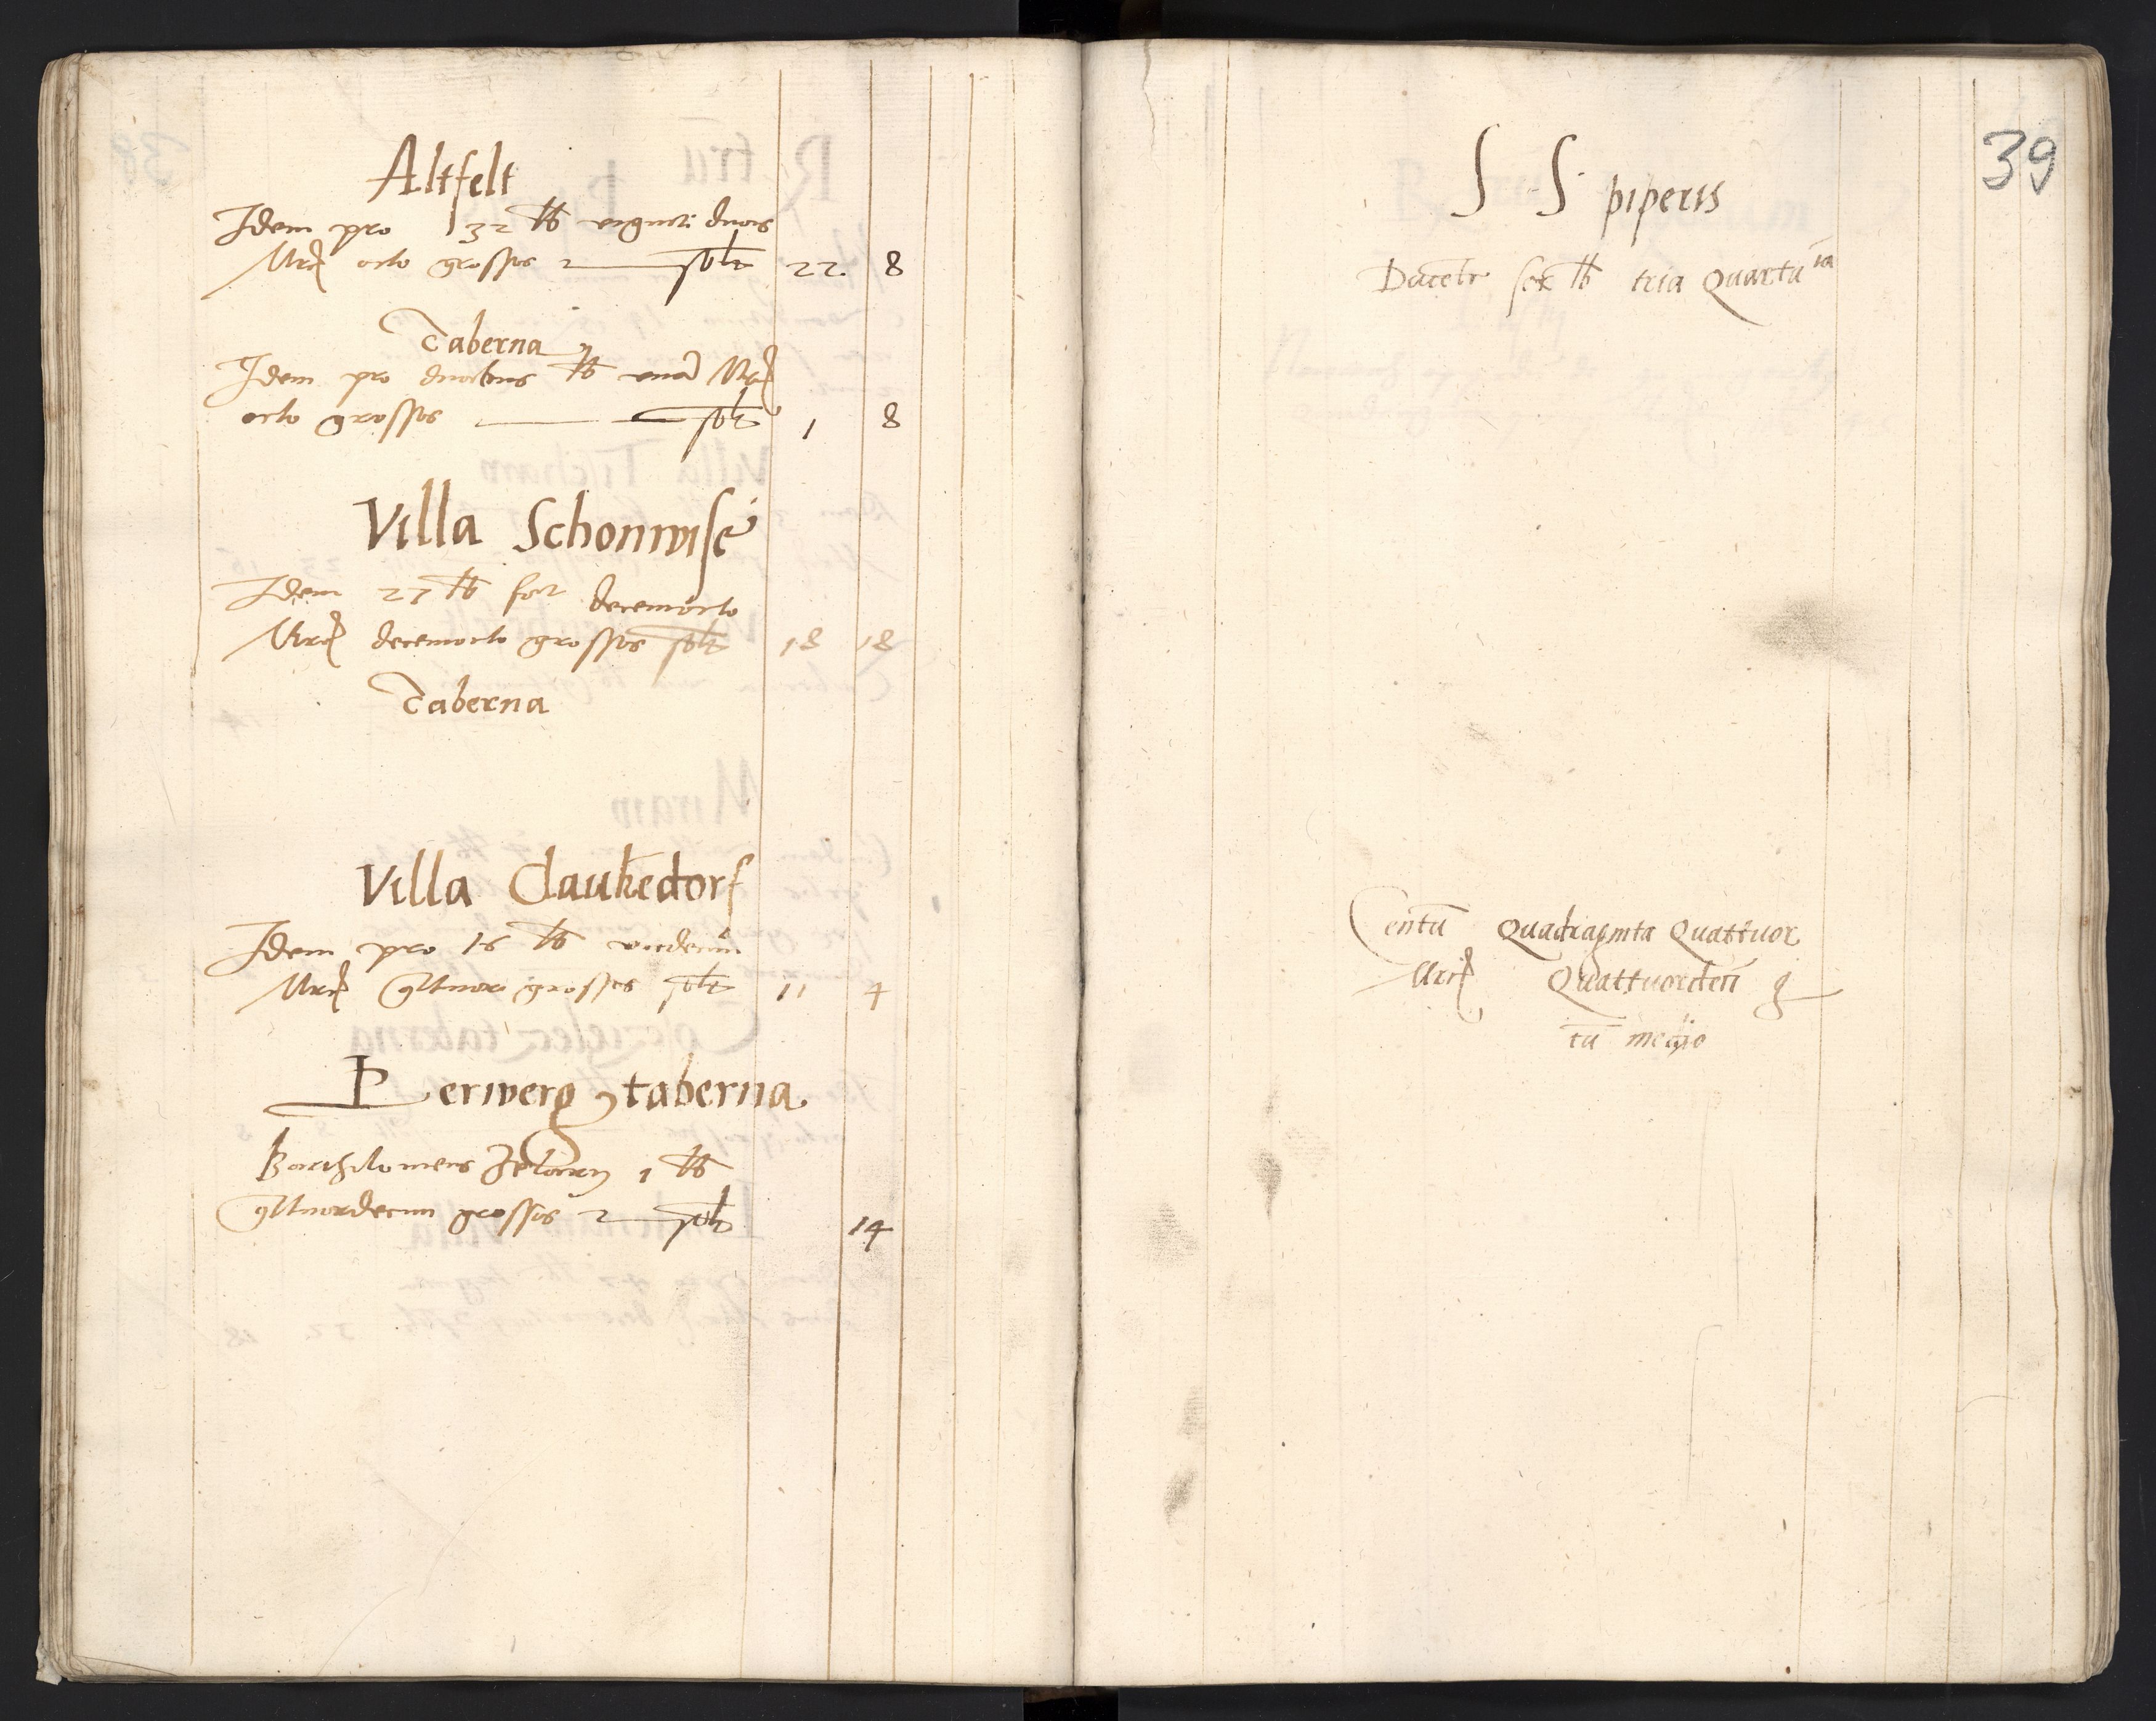 Altfelt
Idem pro 32 ℔ viginti duas
Mrc octo grossos solt 22 8
Taberna
Idem pro duabus ℔ una Mrc
octo grossos solt 1 8
Villa Schonwise
Idem 27 ℔ decemocto
Mrc decemocto grossos solt 18 18
Taberna
Villa Claukedorf
Idem pro 16 ℔ undecim
Mrc qttuor grossos solt 11 4
Perwerg taberna
Bartholomeus 1 ℔
qttuordecim grossos solt 14
39
S S piperis
Ducete sex ℔ tria Quarta
Centu Quadraginta Quattuor
Mrc Quattuordeci g
cu medio